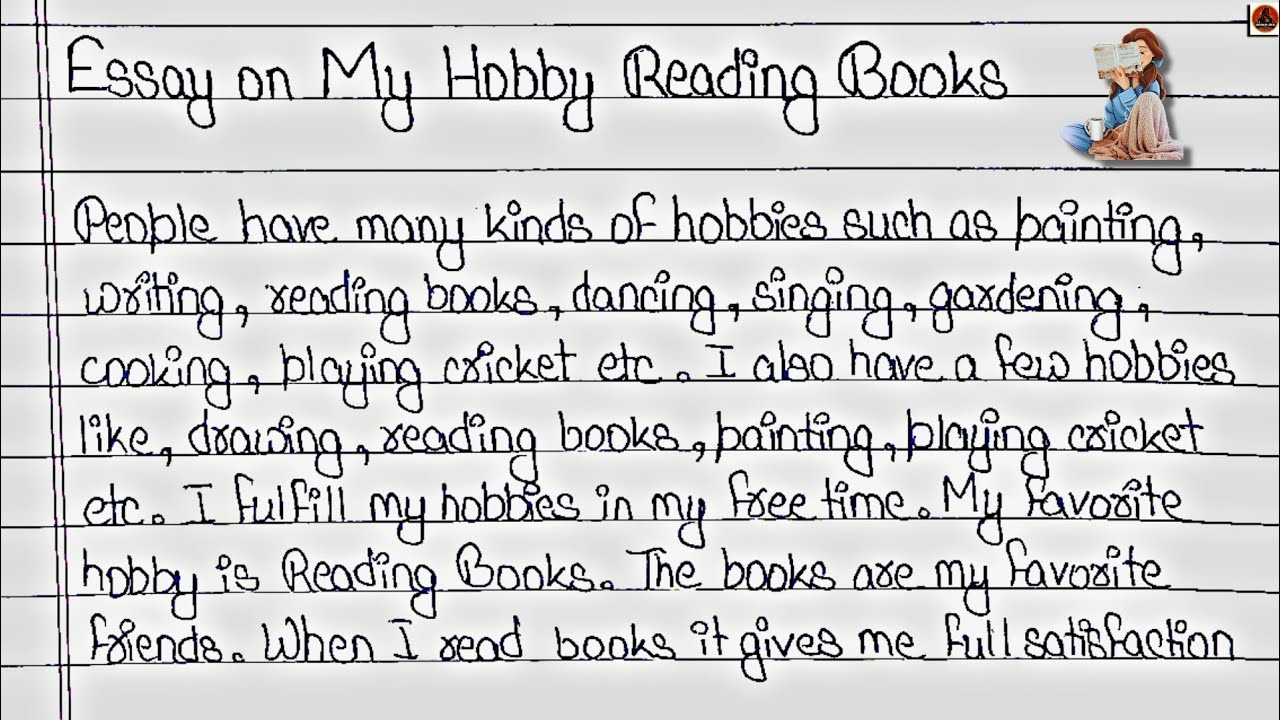 Essay on My Hobby Reading Books
People have many kinds of hobbies such as painting,
writing, reading books, dancing, singing, gardening,
cooking, playing cricket etc. I also have a few hobbies
like, drawing, reading books, painting, playing cricket
etc. I fulfill my hobbies in my free time. My favorite
hobby is Reading Books. The books are my favorite
friends. When I read books it gives me full satisfaction